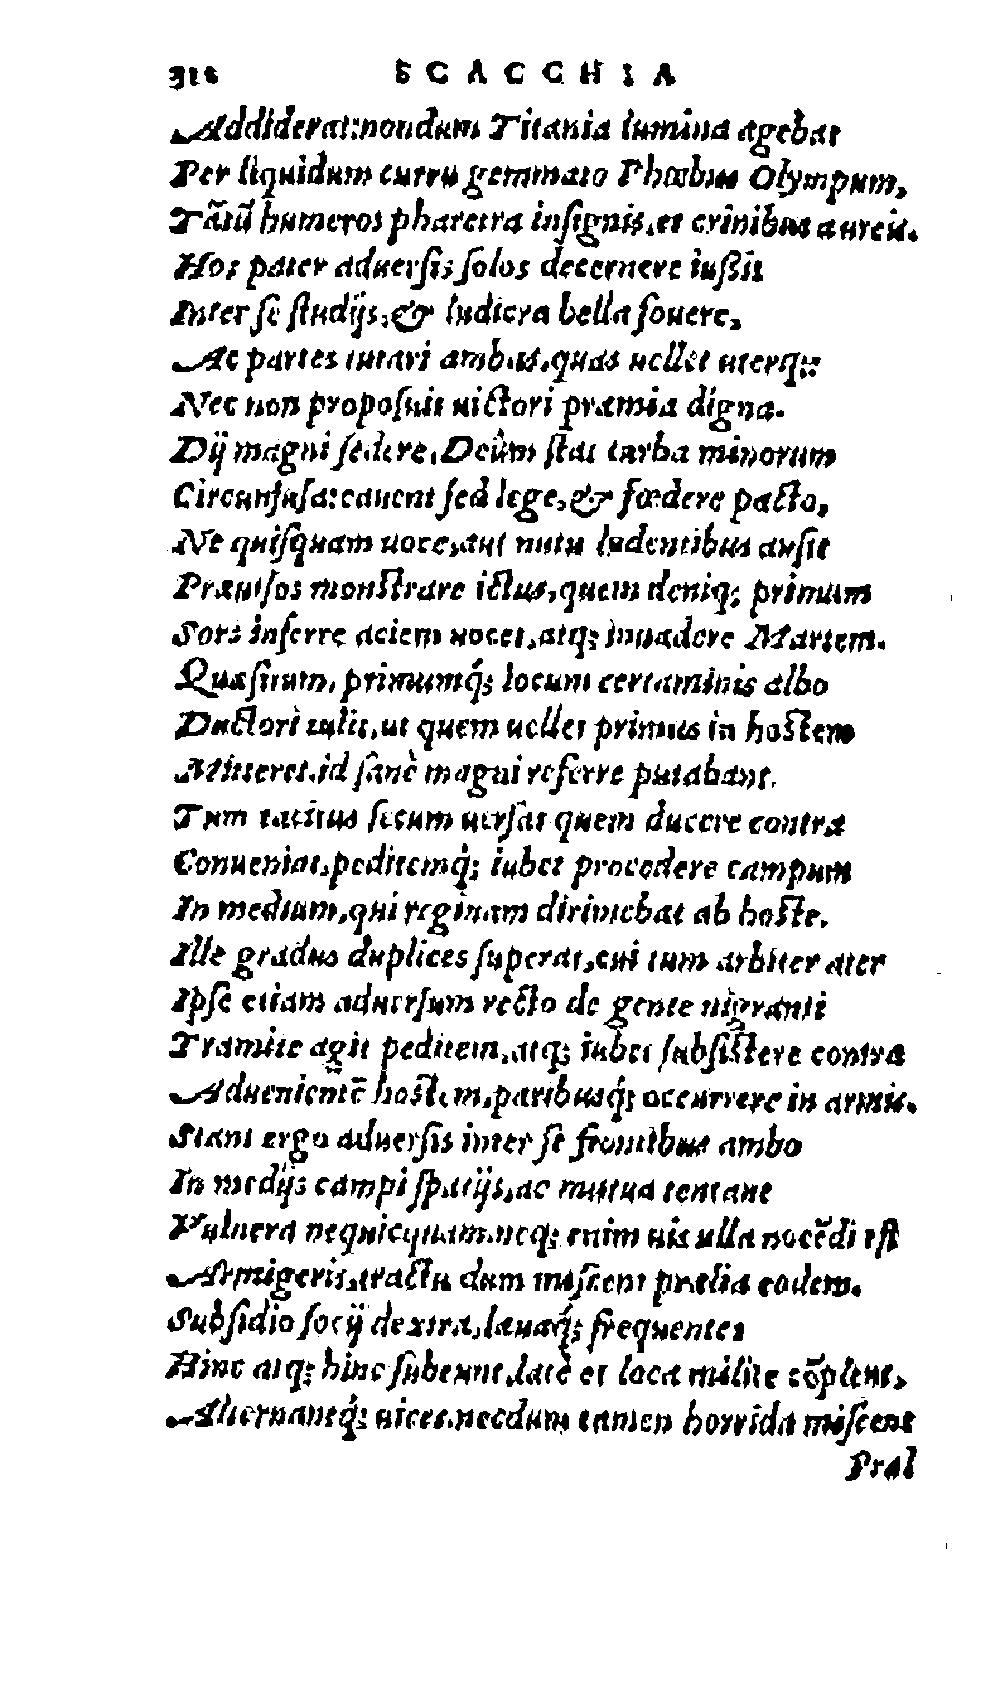 312 SCACCHIA
Addiderat:nondum Titania lumina agebat
Per liquidum curru gemmato Phœbus Olympum,
Tãtũ humeros pharetra insignis,et crinibus aureis.
Hos pater aduersis solos decernere iußit
Inter se studijs,& ludicra bella fouere,
Ac partes tutari ambas,quas uellet uterq;:
Nec non proposuit uictori præmia digna.
Dij magni sedere,Deûm stat turba minorum
Circunfusa:cauent sed lege,& fœdere pacto,
Ne quisquam uoce,aut nutu ludentibus ausit
Præuisos monstrare ictus,quem deniq; primum
Sors inferre aciem uocet,atq; inuadere Martem.
Quæsitum,primumq́; locum certaminis albo
Ductori tulit,ut quem uellet primus in hostem
Mitteret,id sanè magni referre putabant.
Tum tacitus secum uersat quem ducere contra
Conueniat,peditemq́; iubet procedere campum
In medium,qui reginam dirimebat ab hoste.
Ille gradus duplices superat,cui tum arbiter ater
Ipse etiam aduersum recto de gente nigranti
Tramite agit peditem,atq; iubet subsistere contra
Aduenientẽ hostem,paribusq́; occurrere in armis.
Stant ergo aduersis inter se frontibus ambo
In medijs campi spatijs,ac mutua tentant
Vulnera nequicquam,neq; enim uis ulla nocẽdi est
Armigeris,tractu dum miscent prælia eodem.
Subsidio socij dextra,læuaq́; frequentes
Hinc atq; hinc subeunt,latè et loca milite cõplent,
Alternantq́; uices,necdum tamen horrida miscent
Præl